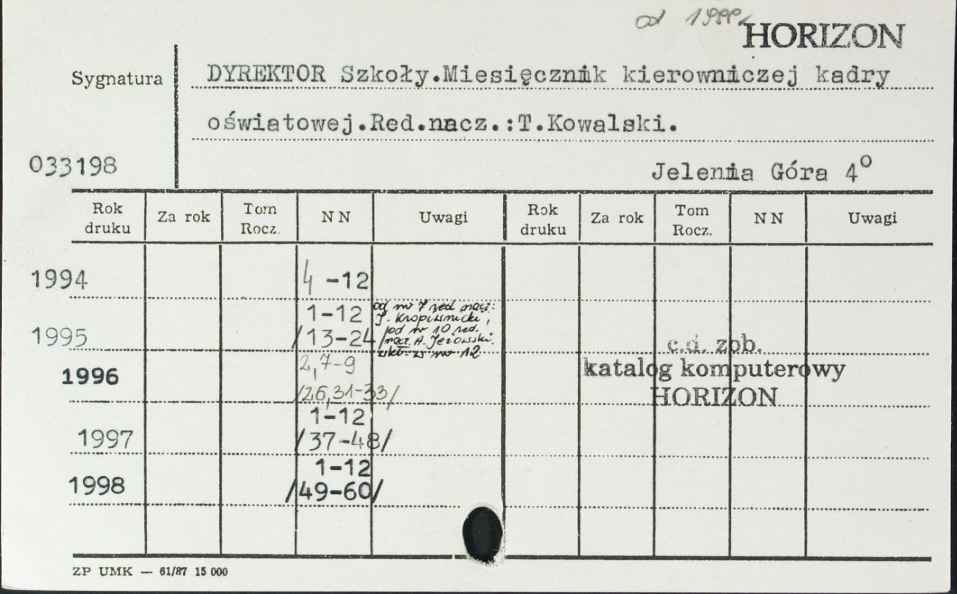 od 1999r
HORIZON
Sygnatura
DYREKTOR Szkoły.Miesięcznik kierowniczej kadry
oświatowej.Red.nacz.:T.Kowalski.
033198
Jelenia Góra 4°
Rok druku Za rok Tom Rocz. NN Uwagi Rok druku Za rok Tom Rocz. NN Uwagi
1994 4 -12
1995 1-12 /13-24/
od nr 7 red. nacz.:
J. Kropiwnicki,
od nr 10 red.
nacz. A. Jezowski.
wkł. w nr 12
1996 2,7-9
/26,31-33/
c.d. zob.
katalog komputerowy
HORIZON
1997 1-12
/37-48/
1998 1-12
/49-60/
ZP UMK — 61/87 15 000